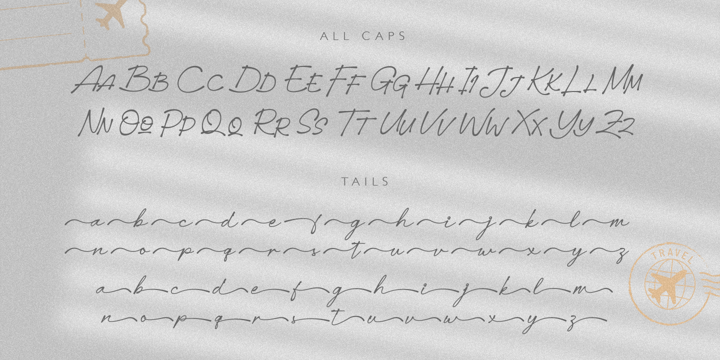 ALL CAPS
AA BB CC DD EE FF GG HH II JJ KK LL MM
NN OO PP QQ RR SS TT UU VV WW XX YY ZZ
TAILS
a b c d e f g h i j k l m
n o p q r s t u v w x y z
TRAVEL
a b c d e f g h i j k l m
n o p q r s t u v w x y z